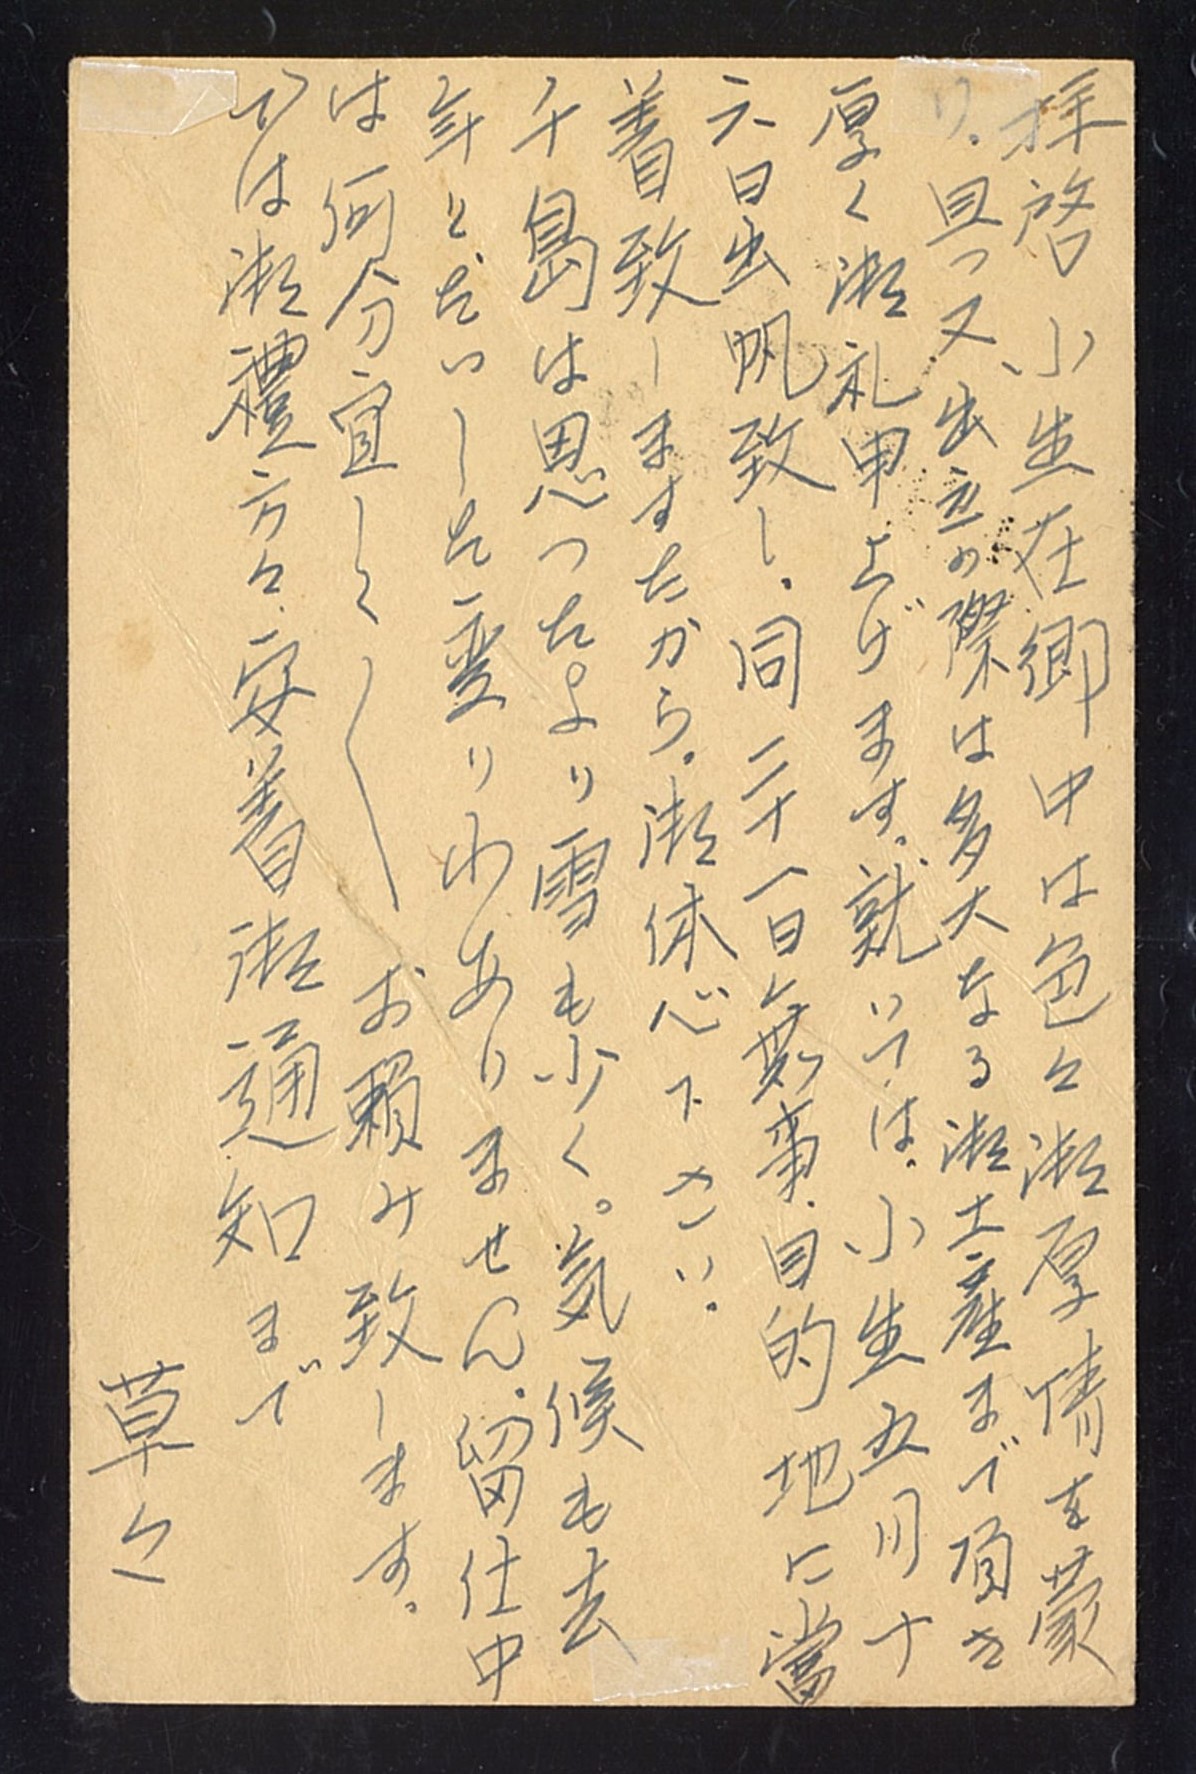 拝啓 小生在郷中は色々御厚情を蒙
り、且つ又出立の際は多大なる御土産まで頂き
厚く御礼申上げます。就いては、小生五月十
六日出帆致し、同二十一日無事、目的地に當
着致しますたから、御休心下さい。
千島は思つたより雪も少く。気候も去
年とたいした変りわありません、留仕中
は何分宜しく〱お頼み致します。
では御禮方々、安着御通知まで
草々